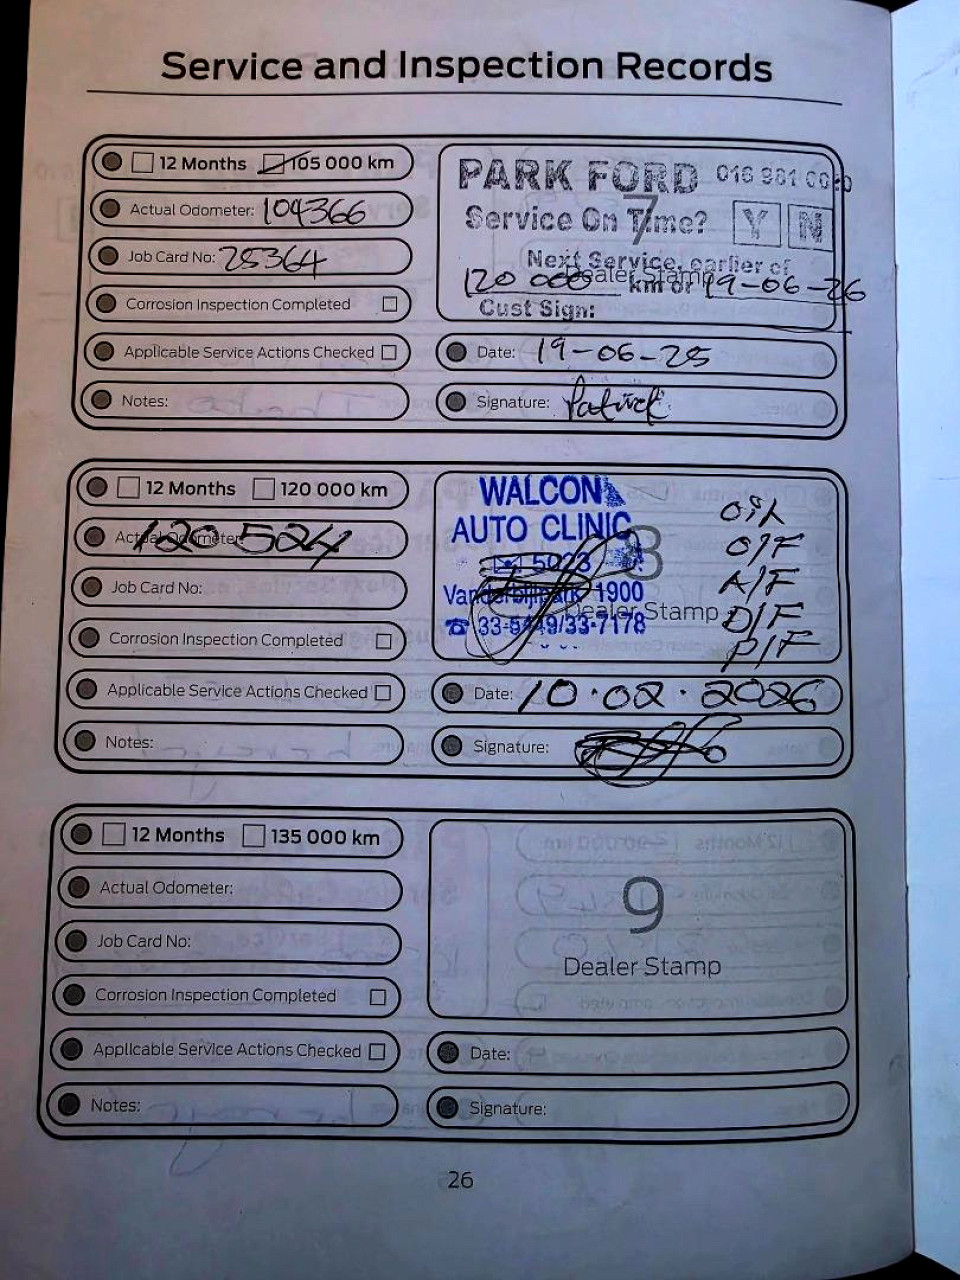 Service and Inspection Records
12 Months 105 000 km
Actual Odometer: 104366
Job Card No: 25364
Corrosion Inspection Completed
Applicable Service Actions Checked
Notes:
PARK FORD 016 981
7
Service On Time? Y N
Next Service, earlier of
Dealer Stamp
120 000 km or 19-06-26
Cust Sign:
Date: 19-06-25
Signature: Patrick
12 Months 120 000 km
Actual Odometer: 120 524
Job Card No:
Corrosion Inspection Completed
Applicable Service Actions Checked
Notes:
WALCON
AUTO CLINIC
5023
Vanderbijlpark 1900
33-5449/33-7178
8
Dealer Stamp
Oil
O/F
A/F
D/F
P/F
Date: 10.02.2026
Signature:
12 Months 135 000 km
Actual Odometer:
Job Card No:
Corrosion Inspection Completed
Applicable Service Actions Checked
Notes:
9
Dealer Stamp
Date:
Signature:
26